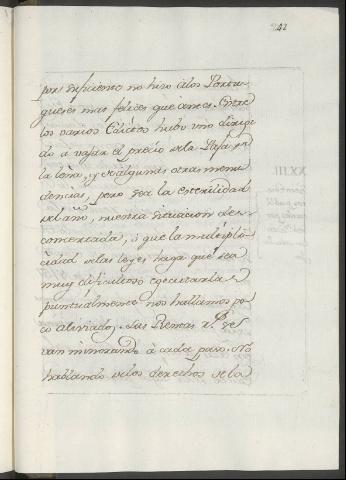 242
por deficiente no hizo álos Portu-
gueses mas felices que antes. Entre
los varios Edictos hubo uno dirigi-
do à vajar el precio dela Paja,
la leña, y de algunas otras menu-
dencias, pero sea la esterilidad
del año, nuestra situacion des-
concertada, ó que la multipli-
cidad delas leyes haga que sea
muy dificultoso egecutarlas
puntualmente nos hallamos po-
co aliviados. Las Rentas Rs. se
van minorando à cada paso. No
hablando delos derechos dela
XXIII.